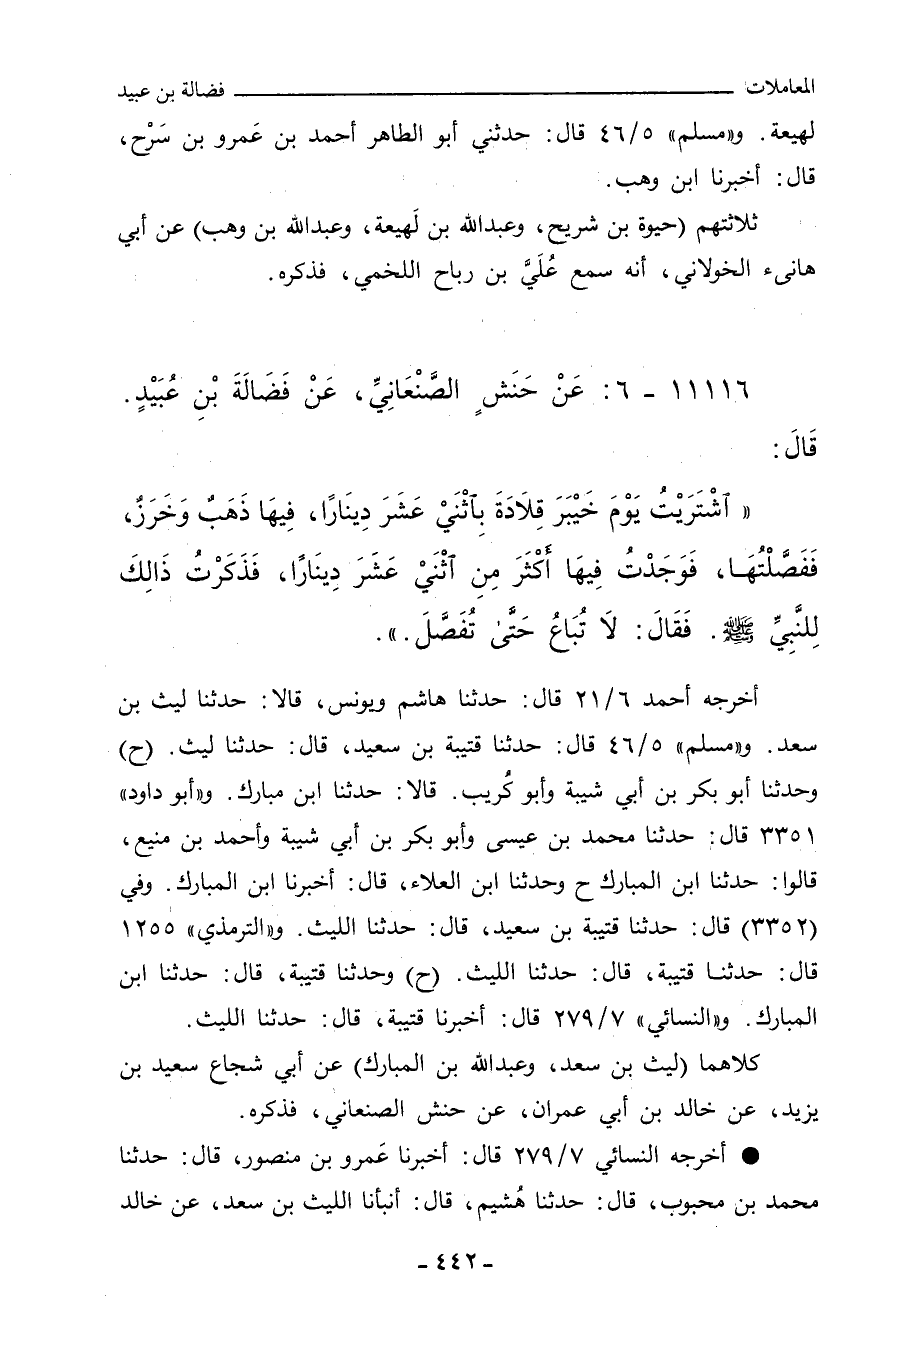 المعاملات ــــــــــــــــــــــــــــــــ فضالة بن عبيد
لهيعة. و«مسلم» ٤٦/٥ قال: حدثني أبو الطاهر أحمد بن عَمرو بن سَرْح،
قال: أخبرنا ابن وهب.
ثلاثتهم (حيوة بن شريح، وعبدالله بن لَهيعة، وعبدالله بن وهب) عن أبي
هانىء الخولاني، أنه سمع عُلَيَّ بن رباح اللخمي، فذكره.
١١١١٦ - ٦: عَنْ حَنَشٍ الصَّنْعَانِيِّ، عَنْ فَضَالَةَ بْنِ عُبَيْدٍ.
قَالَ:
« آشْتَرَيْتُ يَوْمَ خَيْبَرَ قِلَادَةً بِآثْنَيْ عَشَرَ دِينَارًا، فِيهَا ذَهَبٌ وَخَرَزٌ،
فَفَصَّلْتُهَا، فَوَجَدْتُ فِيهَا أَكْثَرَ مِنِ آثْنَيْ عَشَرَ دِينَارًا، فَذَكَرْتُ ذَالِكَ
لِلنَّبِيِّ ﷺ. فَقَالَ: لَا تُبَاعُ حَتَّىٰ تُفَصَّلَ.».
أخرجه أحمد ٢١/٦ قال: حدثنا هاشم ويونس، قالا: حدثنا ليث بن
سعد. و«مسلم» ٤٦/٥ قال: حدثنا قتيبة بن سعيد، قال: حدثنا ليث. (ح)
وحدثنا أبو بكر بن أبي شيبة وأبو كُريب. قالا: حدثنا ابن مبارك. و«أبو داود»
٣٣٥١ قال: حدثنا محمد بن عيسى وأبو بكر بن أبي شيبة وأحمد بن منيع،
قالوا: حدثنا ابن المبارك ح وحدثنا ابن العلاء، قال: أخبرنا ابن المبارك. وفي
(٣٣٥٢) قال: حدثنا قتيبة بن سعيد، قال: حدثنا الليث. و«الترمذي» ١٢٥٥
قال: حدثنا قتيبة، قال: حدثنا الليث. (ح) وحدثنا قتيبة، قال: حدثنا ابن
المبارك. و«النسائي» ٢٧٩/٧ قال: أخبرنا قتيبة، قال: حدثنا الليث.
كلاهما (ليث بن سعد، وعبدالله بن المبارك) عن أبي شجاع سعيد بن
يزيد، عن خالد بن أبي عمران، عن حنش الصنعاني، فذكره.
● أخرجه النسائي ٢٧٩/٧ قال: أخبرنا عَمرو بن منصور، قال: حدثنا
محمد بن محبوب، قال: حدثنا هُشيم، قال: أنبأنا الليث بن سعد، عن خالد
- ٤٤٢ -